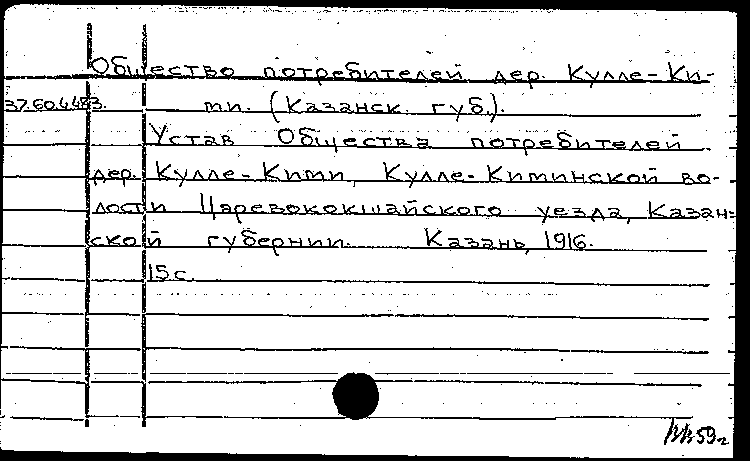 Общество потребителей дер. Кулле-Ки-
37.60.4483. ти. (Казанск. губ.).
Устав Общества потребителей
дер. Кулле-Кими, Кулле-Киминской во-
лости Царевококшайского уезда, Казан-
ской губернии. Казань, 1916.
15 с.
59г